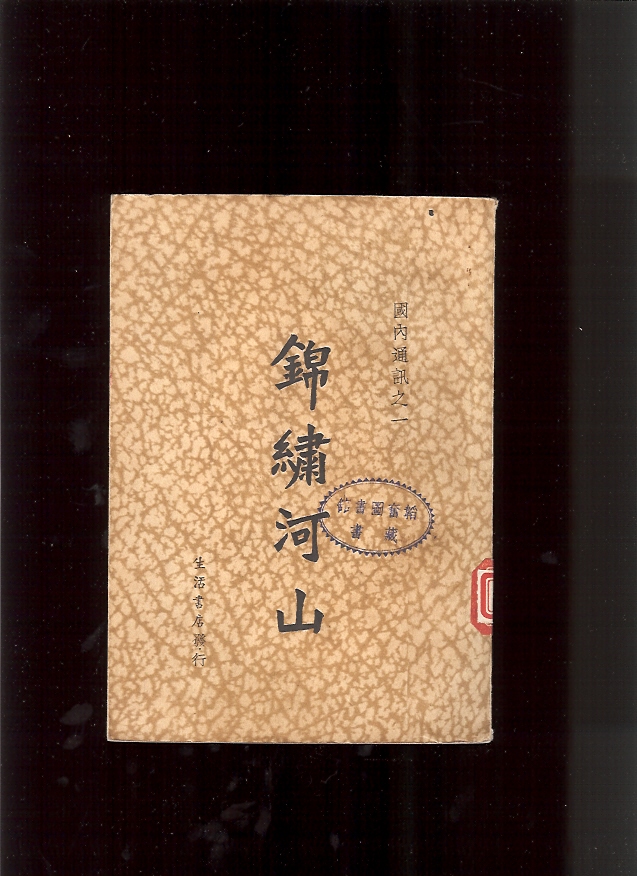 國內通訊之一
錦繡河山
生活書店發行
韜奮圖書館
藏書